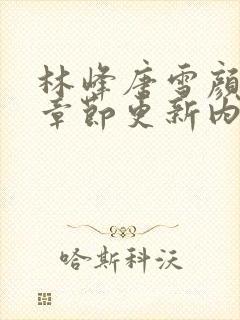 林峰唐雪颜
章节更新内
哈斯科沃